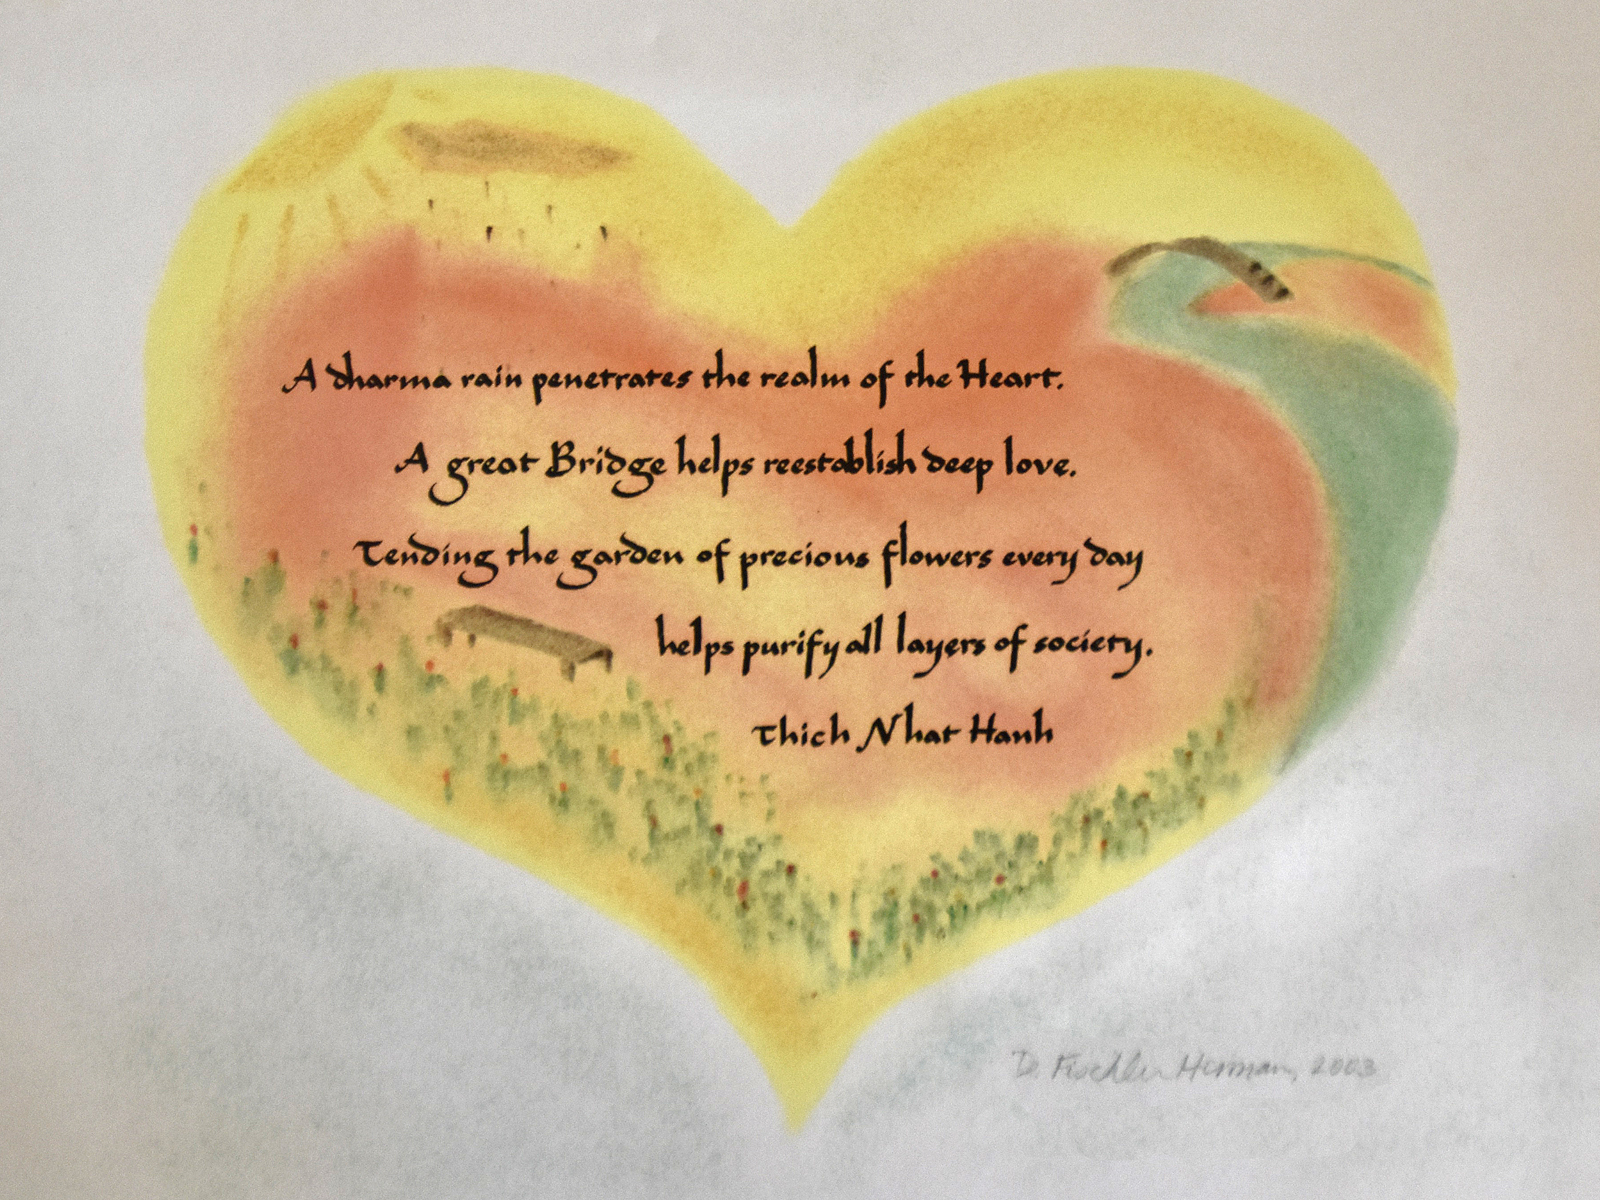 A dharma rain penetrates the realm of the Heart.
A great Bridge helps reestablish deep love.
Tending the garden of precious flowers every day
helps purify all layers of society.
Thich Nhat Hanh
D. Fischler Herman, 2003